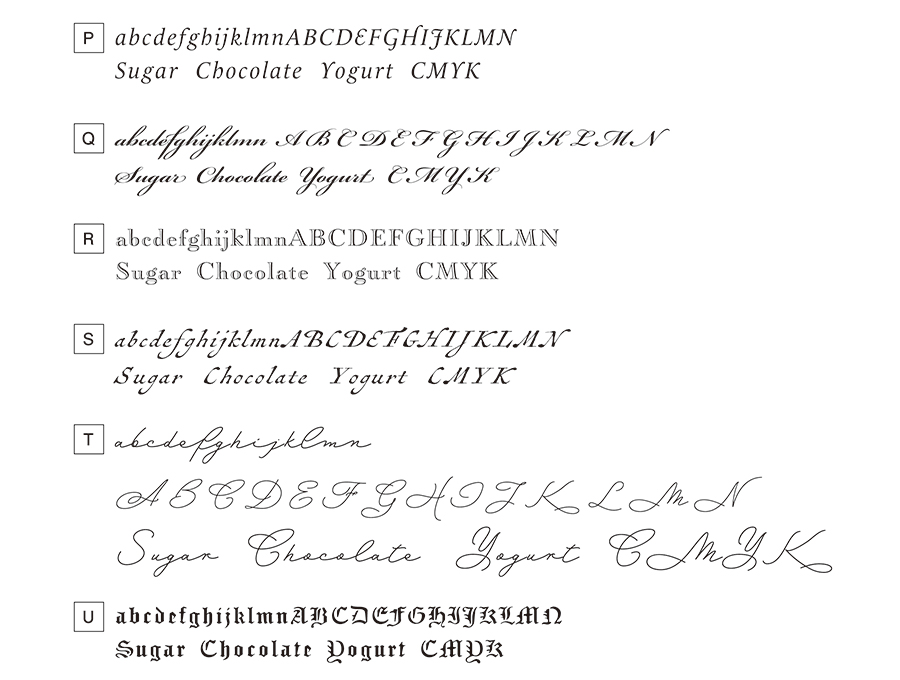 P abcdefghijklmnABCDEFGHIJKLMN
Sugar Chocolate Yogurt CMYK
Q abcdefghijklmn ABCDEFGHIJKLMN
Sugar Chocolate Yogurt CMYK
R abcdefghijklmnABCDEFGHIJKLMN
Sugar Chocolate Yogurt CMYK
S abcdefghijklmnABCDEFGHIJKLMN
Sugar Chocolate Yogurt CMYK
T abcdefghijklmn
ABCDEFGHIJKLMN
Sugar Chocolate Yogurt CMYK
U abcdefghijklmnABCDEFGHIJKLMN
Sugar Chocolate Yogurt CMYK